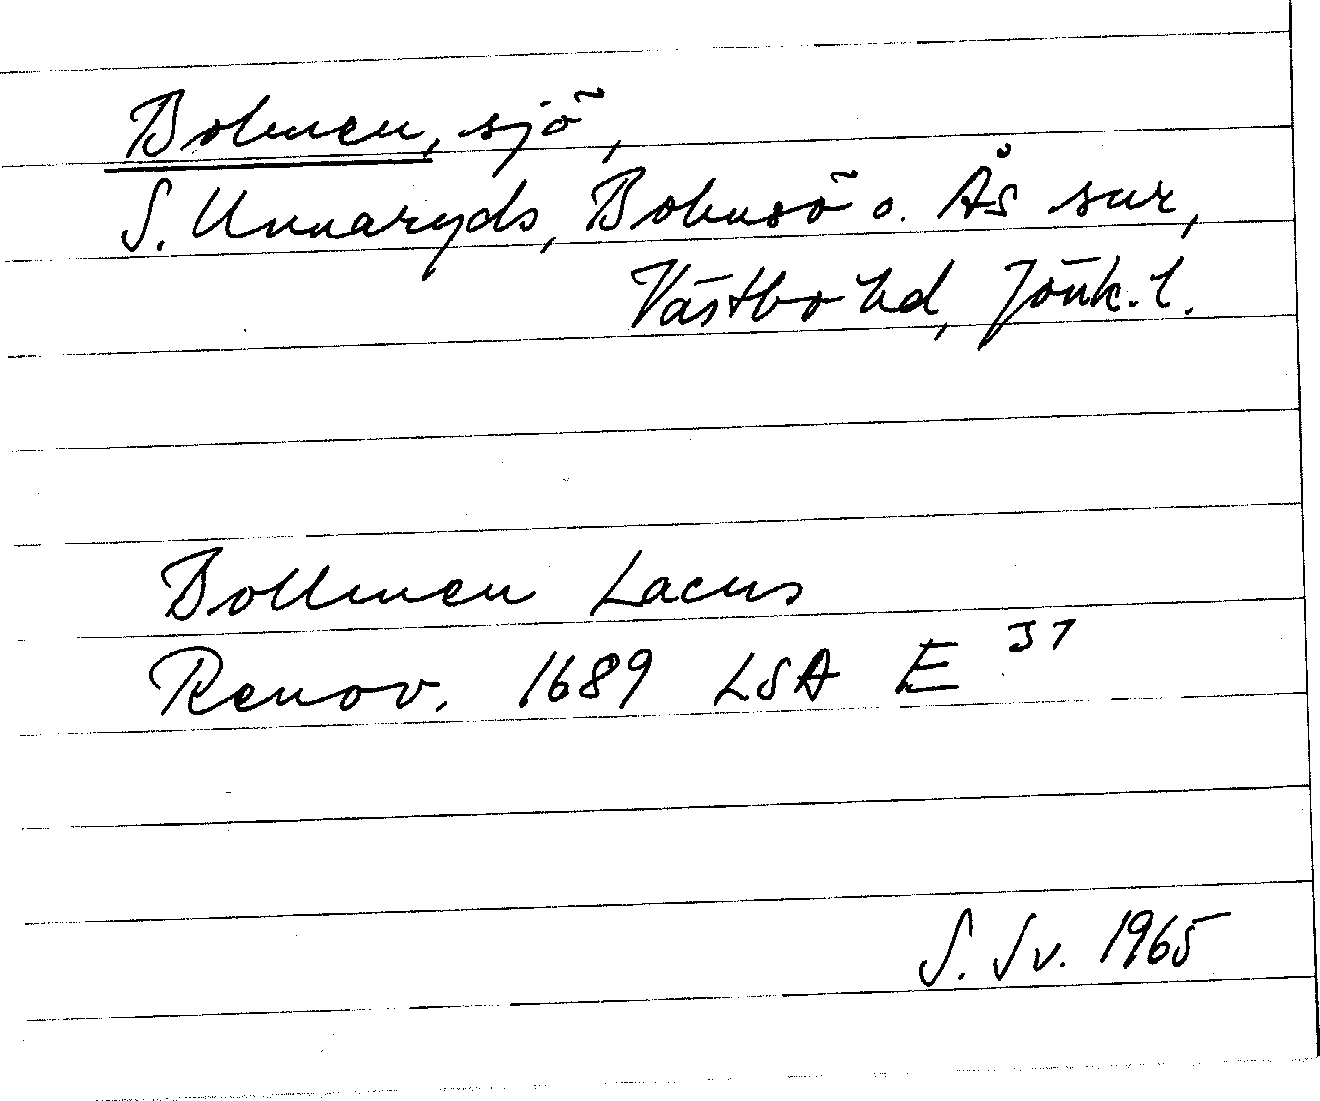 Bolmen, sjö,
S. Unnaryds, Bolmsö o. Ås snr,
Västbo hd, Jönk. l.
Bollmen Lacus
Renov. 1689 LSA E 31
S. Sv. 1965